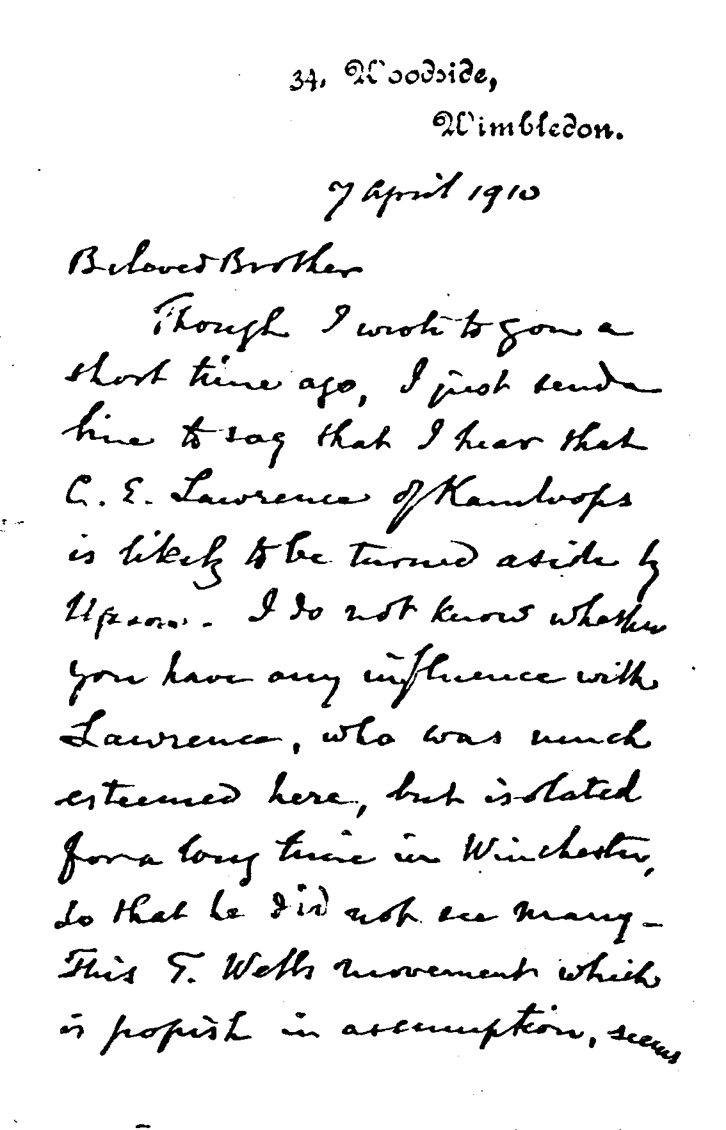 34, Woodside,
Wimbledon.
7 April 1910
Beloved Brother
Though I wrote to you a
short time ago, I just send a
line to say that I hear that
C. E. Lawrence of Kamloops
is likely to be turned aside by
Upson. I do not know whether
you have any influence with
Lawrence, who was much
esteemed here, but isolated
for a long time in Winchester,
so that he did not see many -
This T. Wells movement which
is popish in assumption, seems